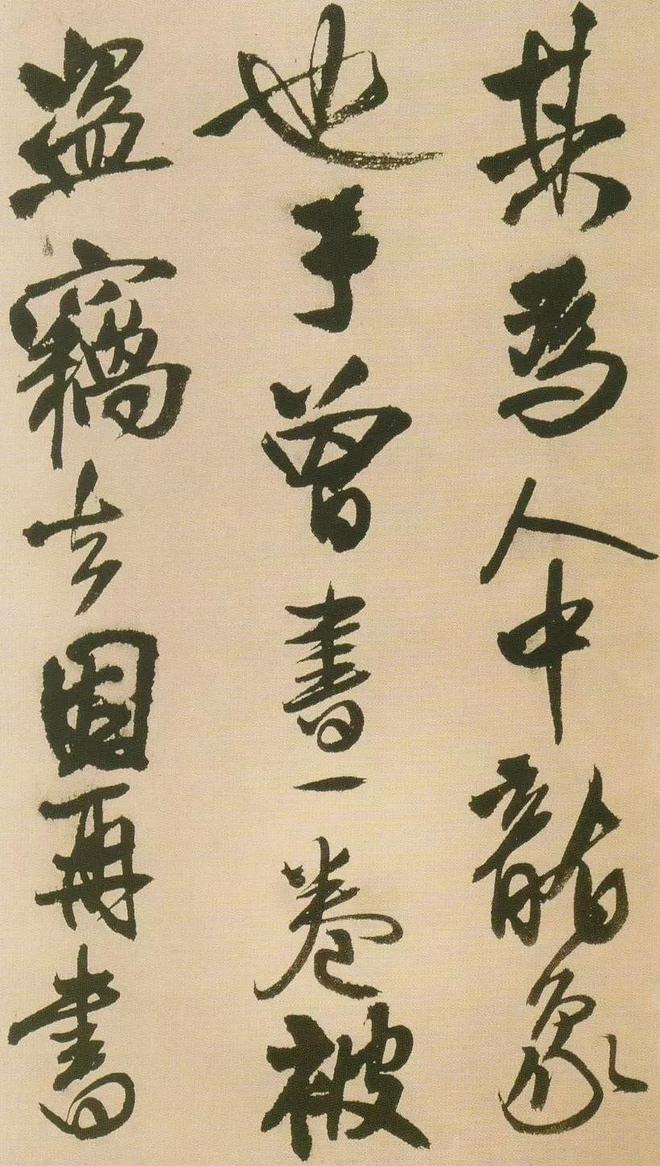 其爲人中龍象
也予曾書一卷被
盜竊去因再書